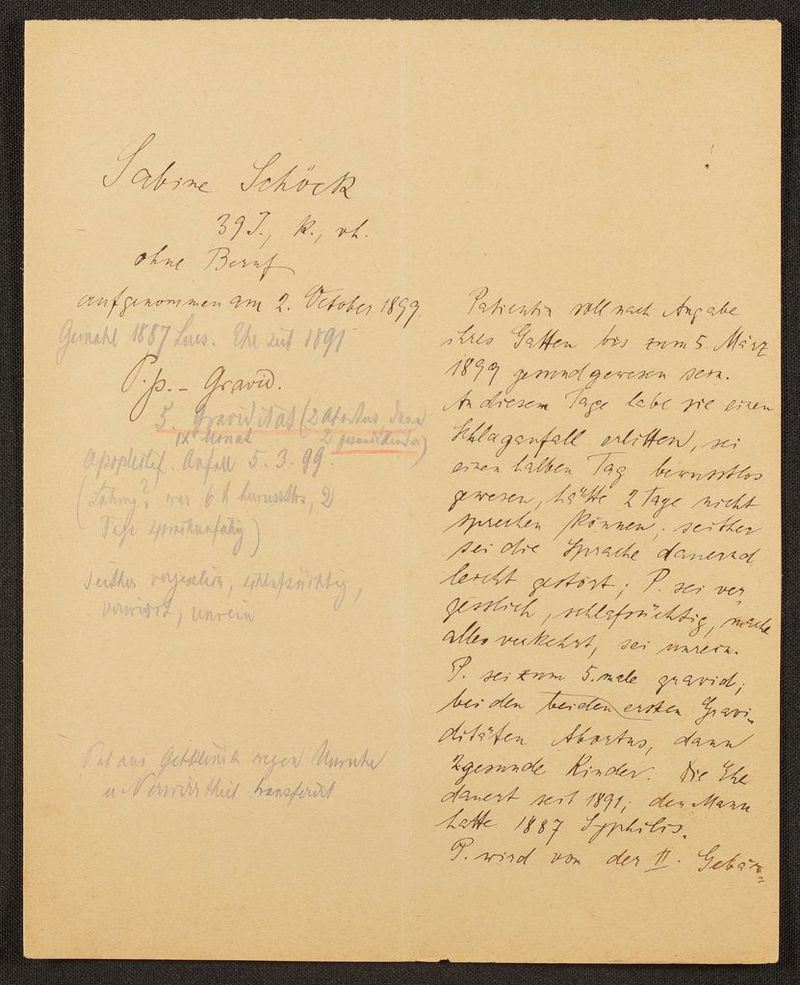 Sabine Schöck
39 J., k., vh.
ohne Beruf
aufgenommen am 2. October 1899
Gemahl 1887 Lues. Ehe seit 1891
P.p. - Gravid.
5. Gravidität (2 Abortus dann
IX Monat 2 gesunde Kinder)
Apoplectif. Anfall 5.3.99.
( war 6 h bewusstlos, 2
Tage sprachunfähig)
Seither vergesslich, schlafsüchtig,
verwirrt, unrein
Pat aus Gebklinik wegen Unruhe
u Verwirrtheit transferirt
Patientin soll nach Angabe
ihres Gatten bis zum 5. März
1899 gesund gewesen sein.
An diesem Tage habe sie einen
Schlaganfall erlitten, sei
einen halben Tag bewusstlos
gewesen, hätte 2 Tage nicht
sprechen können; seither
sei die Sprache dauernd
leicht gestört; P. sei ver
gesslich, schlafsüchtig, mache
alles verkehrt, sei unrein.
P. sei zum 5. male gravid;
bei den beiden ersten Gravi
ditäten Abortus, dann
2 gesunde Kinder. Die Ehe
dauert seit 1891; der Mann
hatte 1887 Syphilis.
P. wird von der II. Gebär=